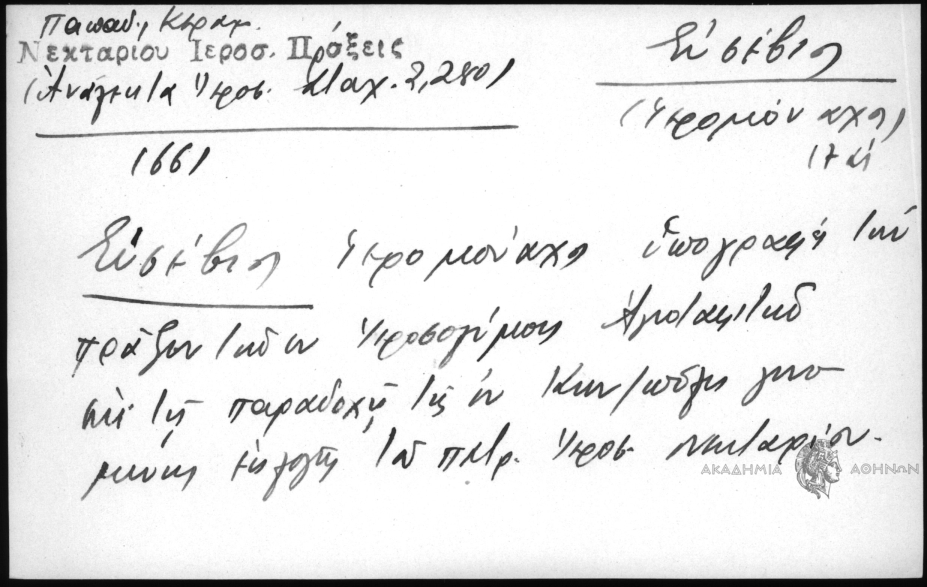 Παπαδ. Κεραμ.
Νεκταριου Ιεροσ. Πράξεις
(Ἀνάλεκτα Ἱεροσ. Σταχ. 2, 280)
1661
Εὐσέβιος
(Ἱερομόναχος)
17 αἰ
Εὐσέβιος Ἱερομόναχος ὑπογραφεὺς τῶν
πράξεων τῶν ἐν Ἱεροσολύμοις
ἐπὶ τῆς παραδοχῆς τῆς ἐν Κων/πόλει γενο
μένης ἐκλογῆς τοῦ πατρ. Ἱεροσ. Νεκταρίου.
ΑΚΑΔΗΜΙΑ ΑΘΗΝΩΝ